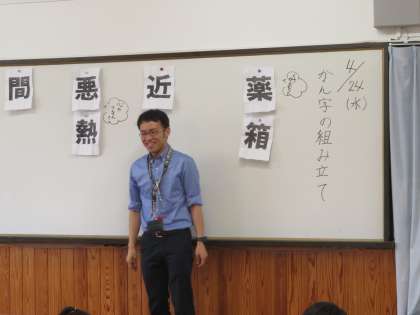 4/24(水)
かん字の組み立て
薬
箱
近
悪
熱
間